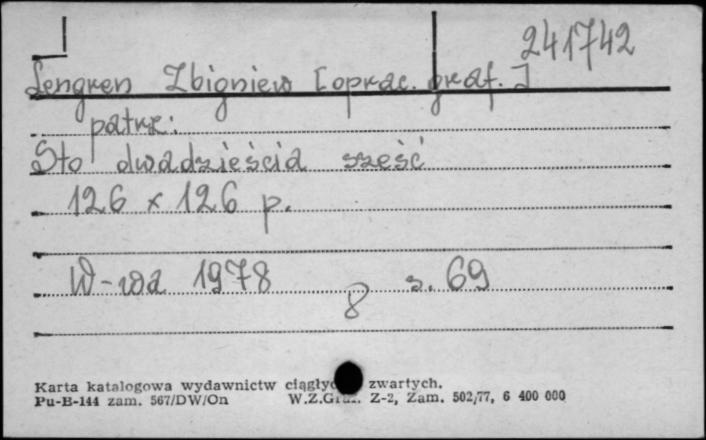 241742
Lengren Zbigniew [oprac. graf.]
patrz:
Sto dwadzieścia sześć
126 x 126 p.
W-wa 1978 s. 69
8
Karta katalogowa wydawnictw zwartych.
Pu-B-144 zam. 567/DW/On W.Z.Graf. Z-2, Zam. 502/77, 6 400 000